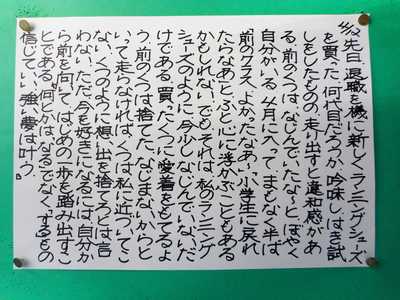 4/22先日、退職を機に新しくランニングシューズ
を買った。何代目だろうか、吟味し、はき試
しをしたものの、走り出すと違和感があ
る。前のくつは、なじんでいたな〜と、ぼやく
自分がいる。4月に入って、まもなく半ば。
前のクラス、よかったなあ。小学生に戻れ
たらなあと、ふと心に浮かぶこともある
かもしれない。でも、それは、私のランニング
シューズのように、今少しなじんでいないだ
けである。買ったくつに愛着をもてるよ
う、前のくつは捨てた。なじまないからと
いって走らなければ、くつは私に近づいてこ
ない。くつのように想い出を捨てろとは言
わない。ただ、今を好きになるには、自分か
ら前を向いて、はじめの一歩を踏み出すこ
とである。何とかは、「なる」でなく、「する」もの
信じていい。強い夢は叶う。